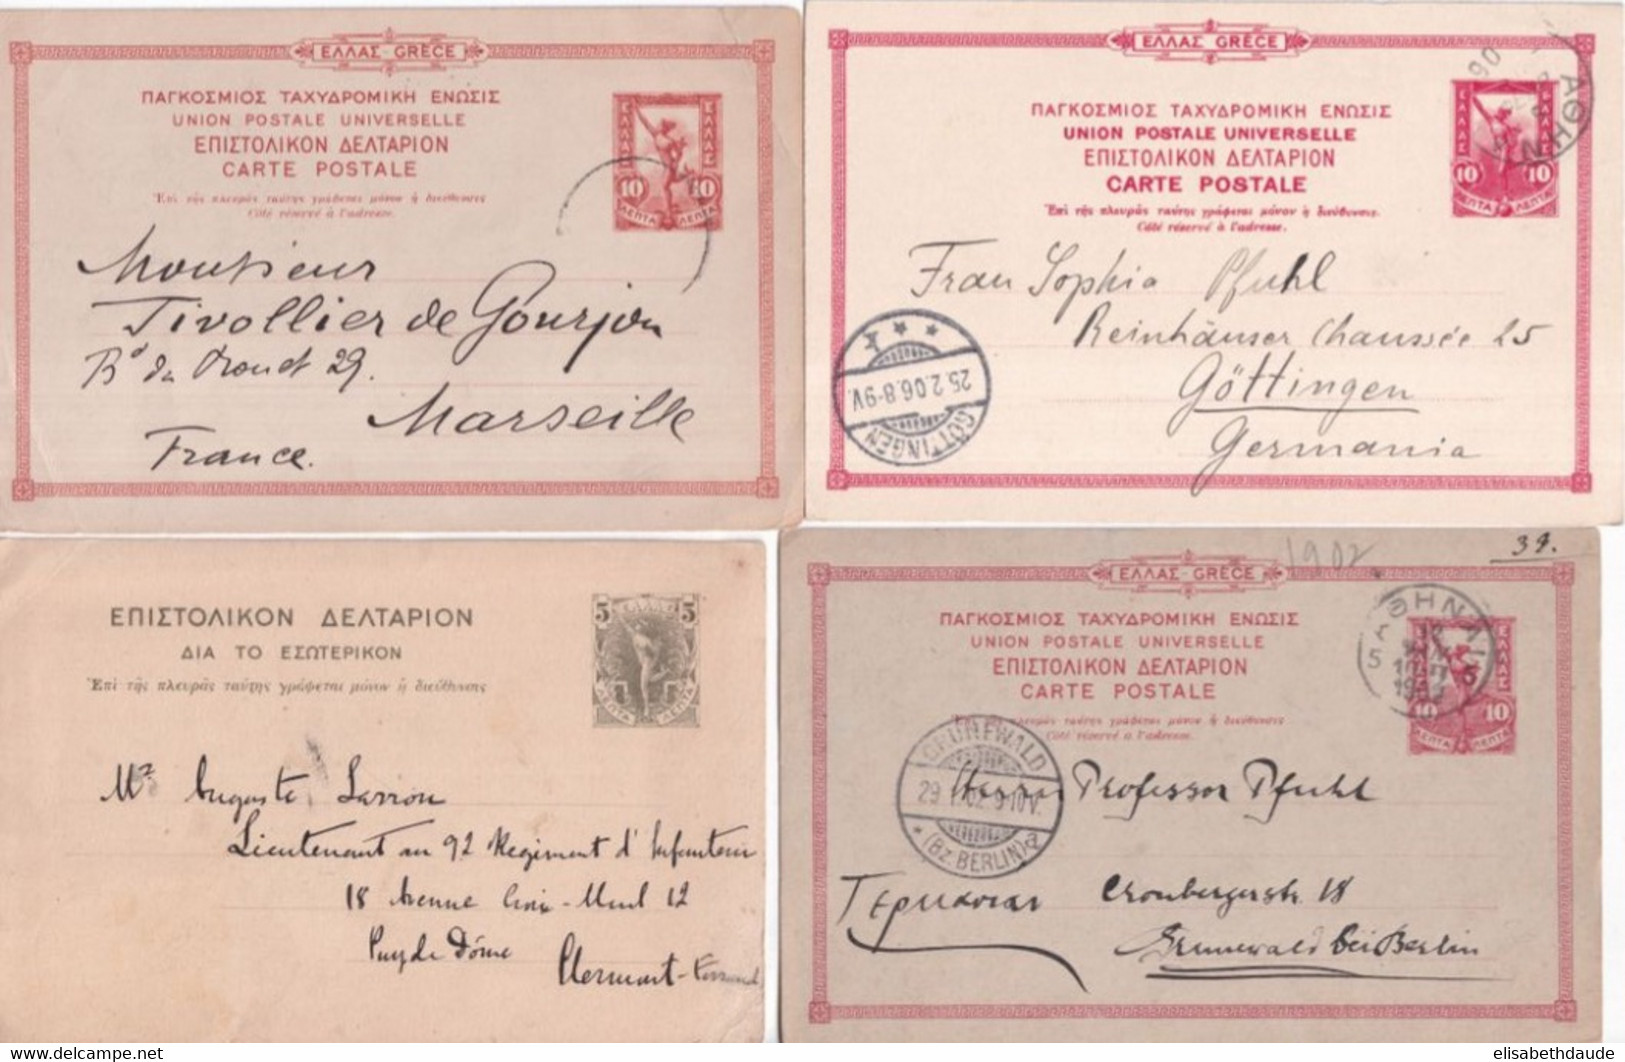 ΕΛΛΑΣ GRÈCE
ΠΑΓΚΟΣΜΙΟΣ ΤΑΧΥΔΡΟΜΙΚΗ ΕΝΩΣΙΣ
UNION POSTALE UNIVERSELLE
ΕΠΙΣΤΟΛΙΚΟΝ ΔΕΛΤΑΡΙΟΝ
CARTE POSTALE
Ἐπὶ τῆς πλευρᾶς ταύτης γράφεται μόνον ἡ διεύθυνσις
Côté réservé à l'adresse.
ΕΛΛΑΣ ΕΛΛΑΣ
10 10
ΛΕΠΤΑ ΛΕΠΤΑ
Monsieur
Tivollier de Gourjon
Bd du 29.
Marseille
France.
ΕΛΛΑΣ GRÈCE
ΠΑΓΚΟΣΜΙΟΣ ΤΑΧΥΔΡΟΜΙΚΗ ΕΝΩΣΙΣ
UNION POSTALE UNIVERSELLE
ΕΠΙΣΤΟΛΙΚΟΝ ΔΕΛΤΑΡΙΟΝ
CARTE POSTALE
Ἐπὶ τῆς πλευρᾶς ταύτης γράφεται μόνον ἡ διεύθυνσις.
Côté réservé à l'adresse.
ΕΛΛΑΣ
10 10
ΛΕΠΤΑ ΛΕΠΤΑ
ΑΘΗΝ
06
Frau Sophia Pfuhl
Reinhäuser Chaussée 25
Göttingen
Germania
25.2.06.8-9V.
GÖTTINGEN
ΕΠΙΣΤΟΛΙΚΟΝ ΔΕΛΤΑΡΙΟΝ
ΔΙΑ ΤΟ ΕΣΩΤΕΡΙΚΟΝ
Ἐπὶ τῆς πλευρᾶς ταύτης γράφεται μόνον ἡ διεύθυνσις
5 ΕΛΛΑΣ 5
ΛΕΠΤΑ ΛΕΠΤΑ
Mr Auguste Larrion
Lieutenant au 92 Regiment d'Infanterie
18 Avenue Croix-Morel 12
Puy de Dôme
Clermont-Ferrand
1902
39.
ΕΛΛΑΣ GRÈCE
ΠΑΓΚΟΣΜΙΟΣ ΤΑΧΥΔΡΟΜΙΚΗ ΕΝΩΣΙΣ
UNION POSTALE UNIVERSELLE
ΕΠΙΣΤΟΛΙΚΟΝ ΔΕΛΤΑΡΙΟΝ
CARTE POSTALE
Ἐπὶ τῆς πλευρᾶς ταύτης γράφεται μόνον ἡ διεύθυνσις
Côté réservé à l'adresse.
ΕΛΛΑΣ
10 10
ΛΕΠΤΑ ΛΕΠΤΑ
ΑΘΗΝΑΙ
5 5
GRUNEWALD
29.1.02.9-10V.
(Bz. BERLIN) a
Herrn Professor Pfuhl
Γερμανίαν Cronbergerstr. 18
Grunewald bei Berlin
elisabethdaude
www.delcampe.net